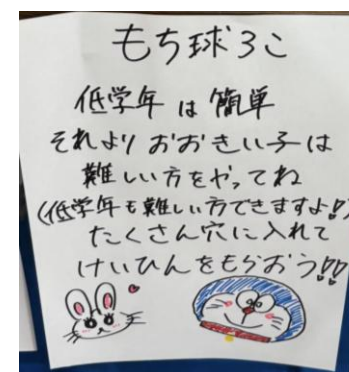 もち球3こ
低学年は簡単
それよりおおきい子は
難しい方をやってね
(低学年も難しい方できますよ!!)
たくさん穴に入れて
けいひんをもらおう!!